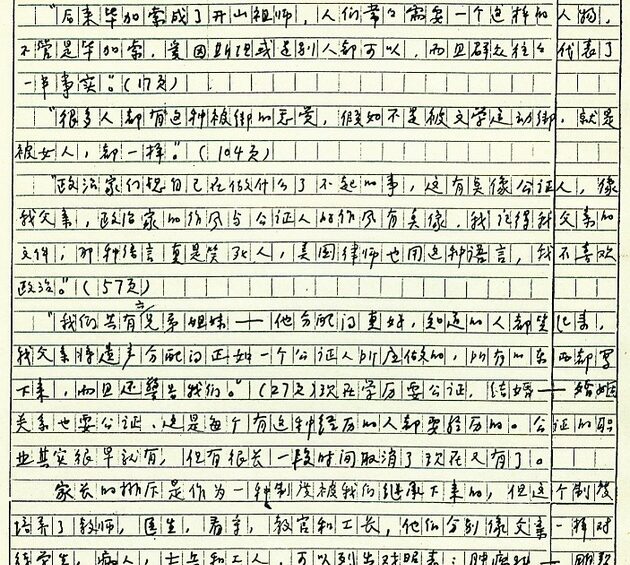 "后来毕加索成了开山祖师，人们常常需要一个这样的人物，
不管是毕加索、爱因斯坦或是别人都可以，而且群众往往代表了
一半事实。"(17页)
"很多人都有这种被绑的感觉，假如不是被文学运动绑，就是
被女人，都一样。"(104页)
"政治家们想自己在做什么了不起的事，这有点像公证人，像
我父亲，政治家的作风与公证人的作风有点像，我记得我父亲的
文件；那种语言真是笑死人，美国律师也用这种语言，我不喜欢
政治。"(57页)
"我们共有六兄弟姐妹——他分配的真好，知道的人都笑起来，
我父亲将遗产分配的正如一个公证人所应做的，所有的东西都写
下来，而且还警告我们。"(27页)现在学历要公证，结婚——婚姻
关系也要公证，这是每个有这种经历的人都要经历的。公证的职
业其实很早就有，但有很长一段时间取消了现在又有了。
家长的 是作为一种制度被我们继承下来的，但这个制度
培养了教师，医生，看守，教官和工长，他们分别像父亲一样对
待学生，病人，士兵和工人，可以列出对照表：